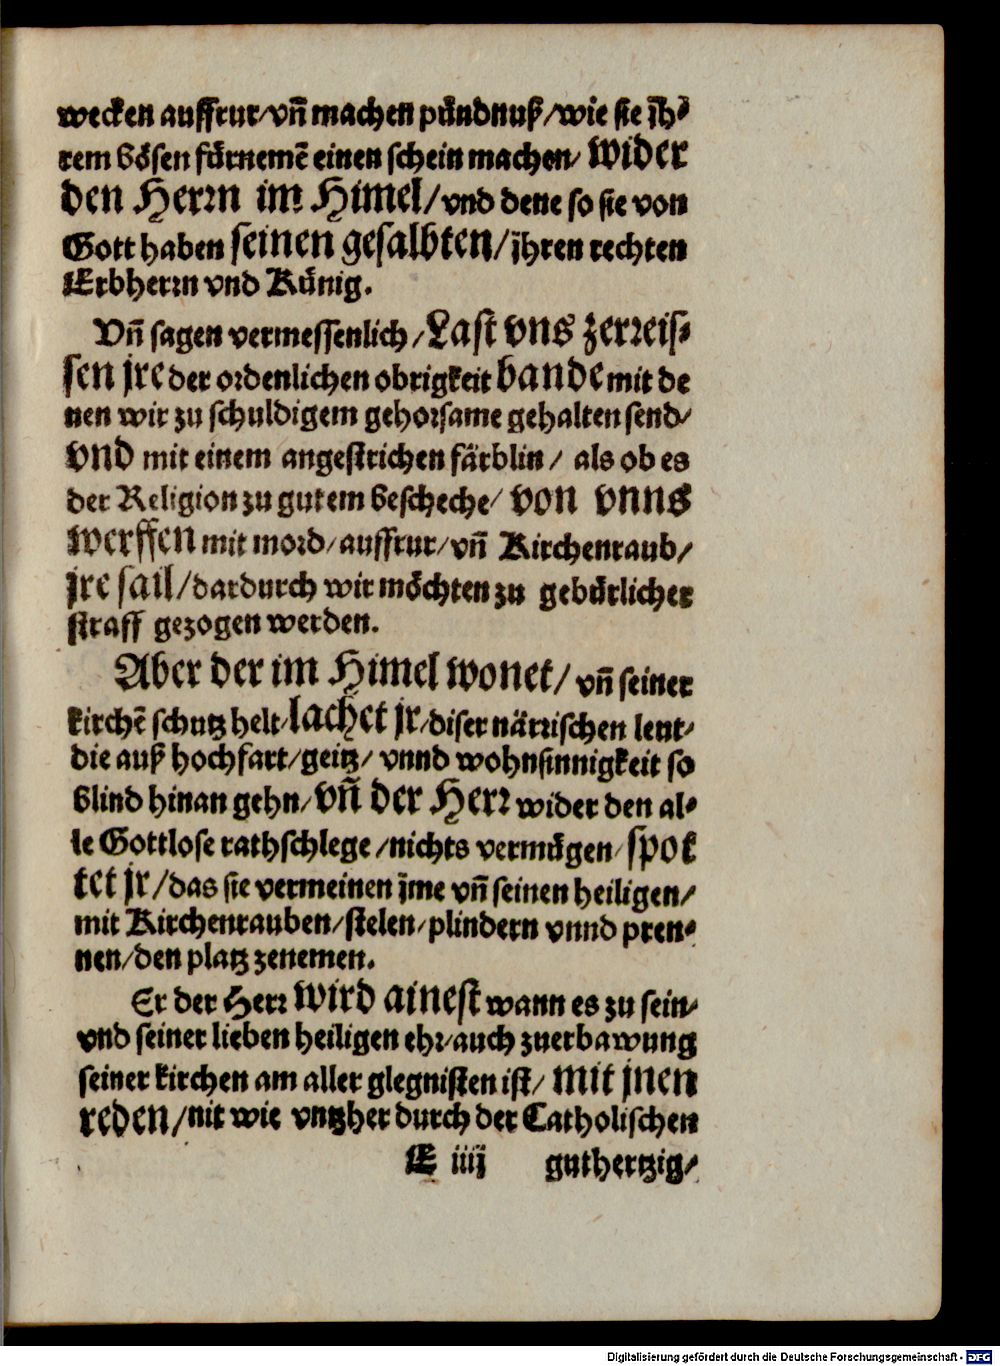 wecken auffrur/vñ machen pündnuß/wie sie jh⸗
rem bösen fürnemē einen schein machen/ wider
den Herrn im Himel/vnd dene so sie von
Gott haben seinen gesalbten/jhren rechten
Erbherrn vnd Künig.
Vñ sagen vermessenlich/Last vns zerreis⸗
sen jre der ordenlichen obrigkeit bande mit de
nen wir zu schuldigem gehorsame gehalten send/
vnd mit einem angestrichen färblin/ als ob es
der Religion zu gutem bescheche/ von vnns
werffen mit mord/auffrur/vñ Kirchenraub/
jre sail/dardurch wir möchten zu gebürlicher
straff gezogen werden.
Aber der im Himel wonet/ vñ seiner
kirchē schutz helt/lachet jr/diser närrischen leut/
die auß hochfart/geitz/ vnnd wohnsinnigkeit so
blind hinan gehn/vñ der Herr wider den al⸗
le Gottlose rathschlege/nichts vermügen/spot
tet jr/das sie vermeinen jme vñ seinen heiligen/
mit Kirchenrauben/stelen/plindern vnnd pren⸗
nen/den platz zenemen.
Er der Herr wird ainest wann es zu sein/
vnd seiner lieben heiligen ehr/auch zuerbawung
seiner kirchen am aller glegnisten ist/ mit jnen
reden/nit wie vntzher durch der Catholischen
E iiij guthertzig/
Digitalisierung gefördert durch die Deutsche Forschungsgemeinschaft - DFG